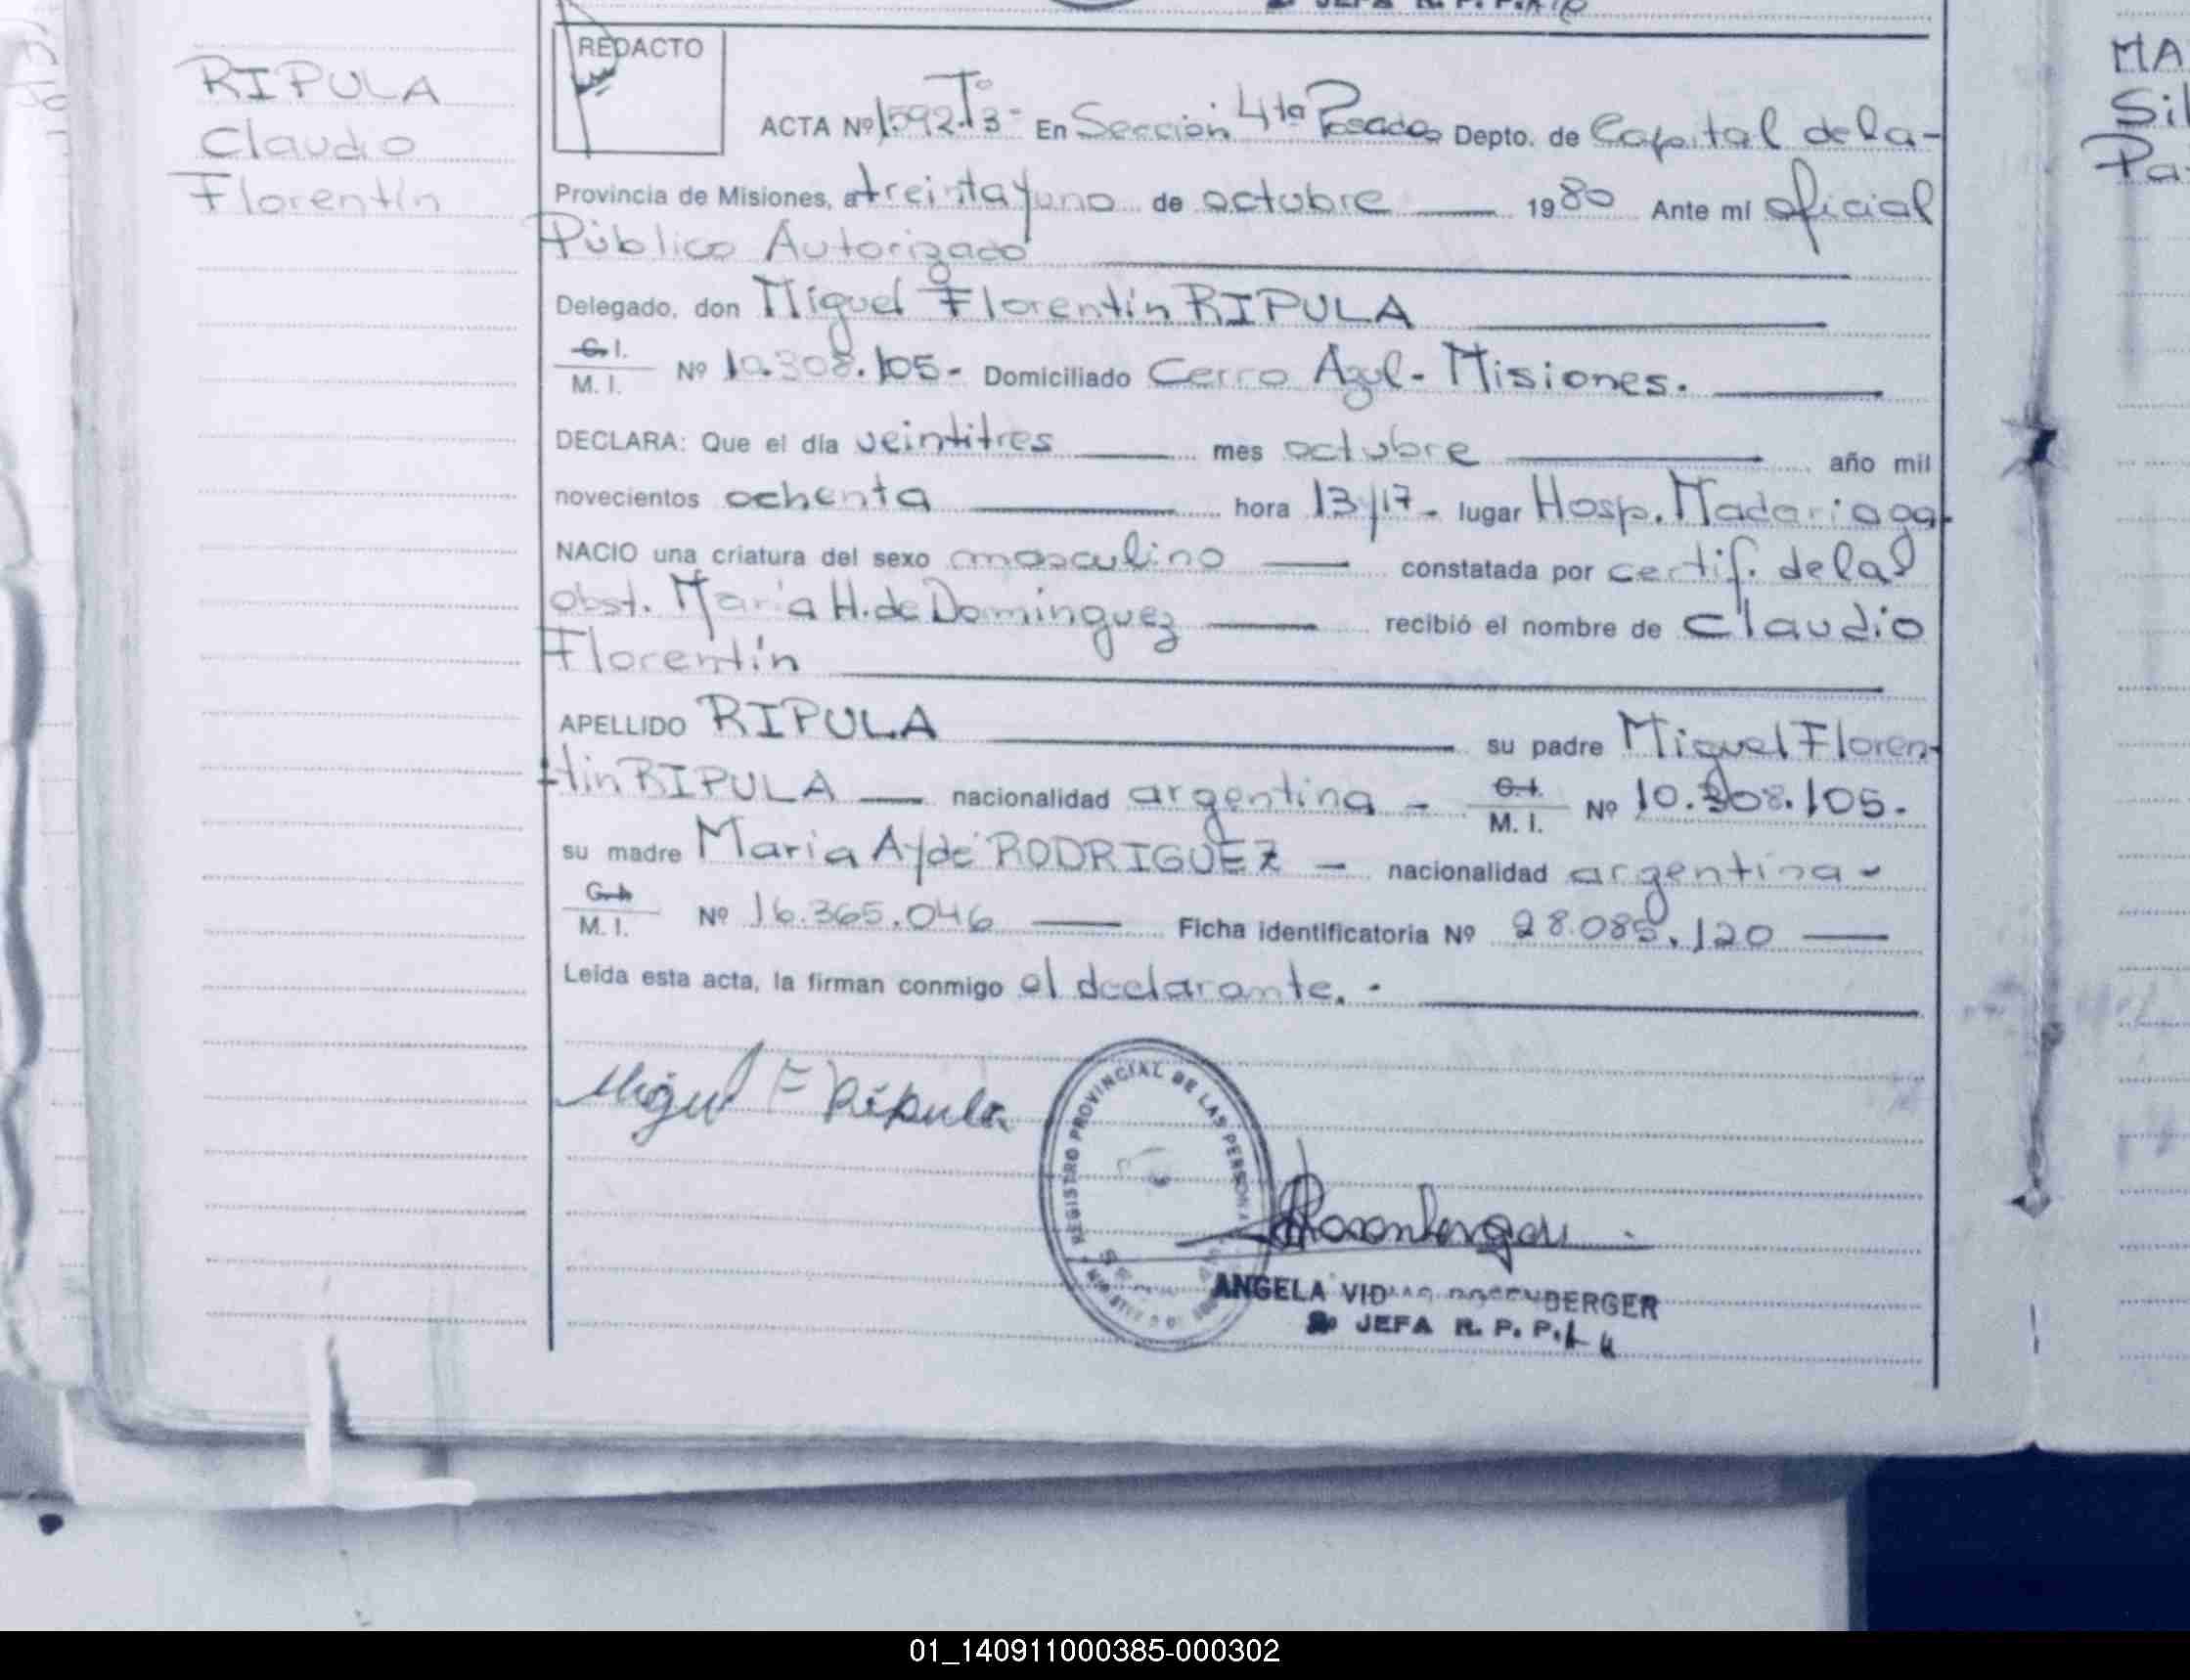 JEFA R. P. P.
RIPULA
Claudio
Florentín
REDACTO
ACTA Nº 1592 Tº 3- En Sección 4ta Posadas Depto. de Capital de la-
Provincia de Misiones, a treinta y uno de octubre 1980 Ante mí oficial
Público Autorizado
Delegado, don Miguel Florentín RIPULA
C. I.
M. I. Nº 10.308.105- Domiciliado Cerro Azul- Misiones.
DECLARA: Que el día veintitres mes octubre año mil
novecientos ochenta hora 13/17- lugar Hosp. Madariaga-
NACIO una criatura del sexo masculino constatada por certif. de la
obst. María H. de Dominguez recibió el nombre de Claudio
Florentín
APELLIDO RIPULA su padre Miguel Floren-
tin RIPULA nacionalidad argentina - C. I.
M. I. Nº 10.308.105.
su madre Maria Aydé RODRIGUEZ - nacionalidad argentina -
C. I.
M. I. Nº 16.365.046 Ficha identificatoria Nº 28.085.120
Leída esta acta, la firman conmigo el declarante. -
Miguel F Ripula
REGISTRO PROVINCIAL DE LAS PERSONAS
ANGELA BERGER
JEFA R. P. P.
MA
Sil
Pa
01_140911000385-000302